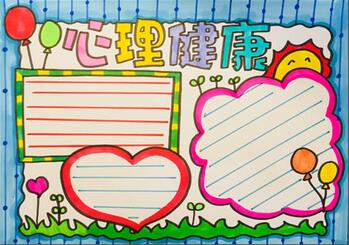 心理健康